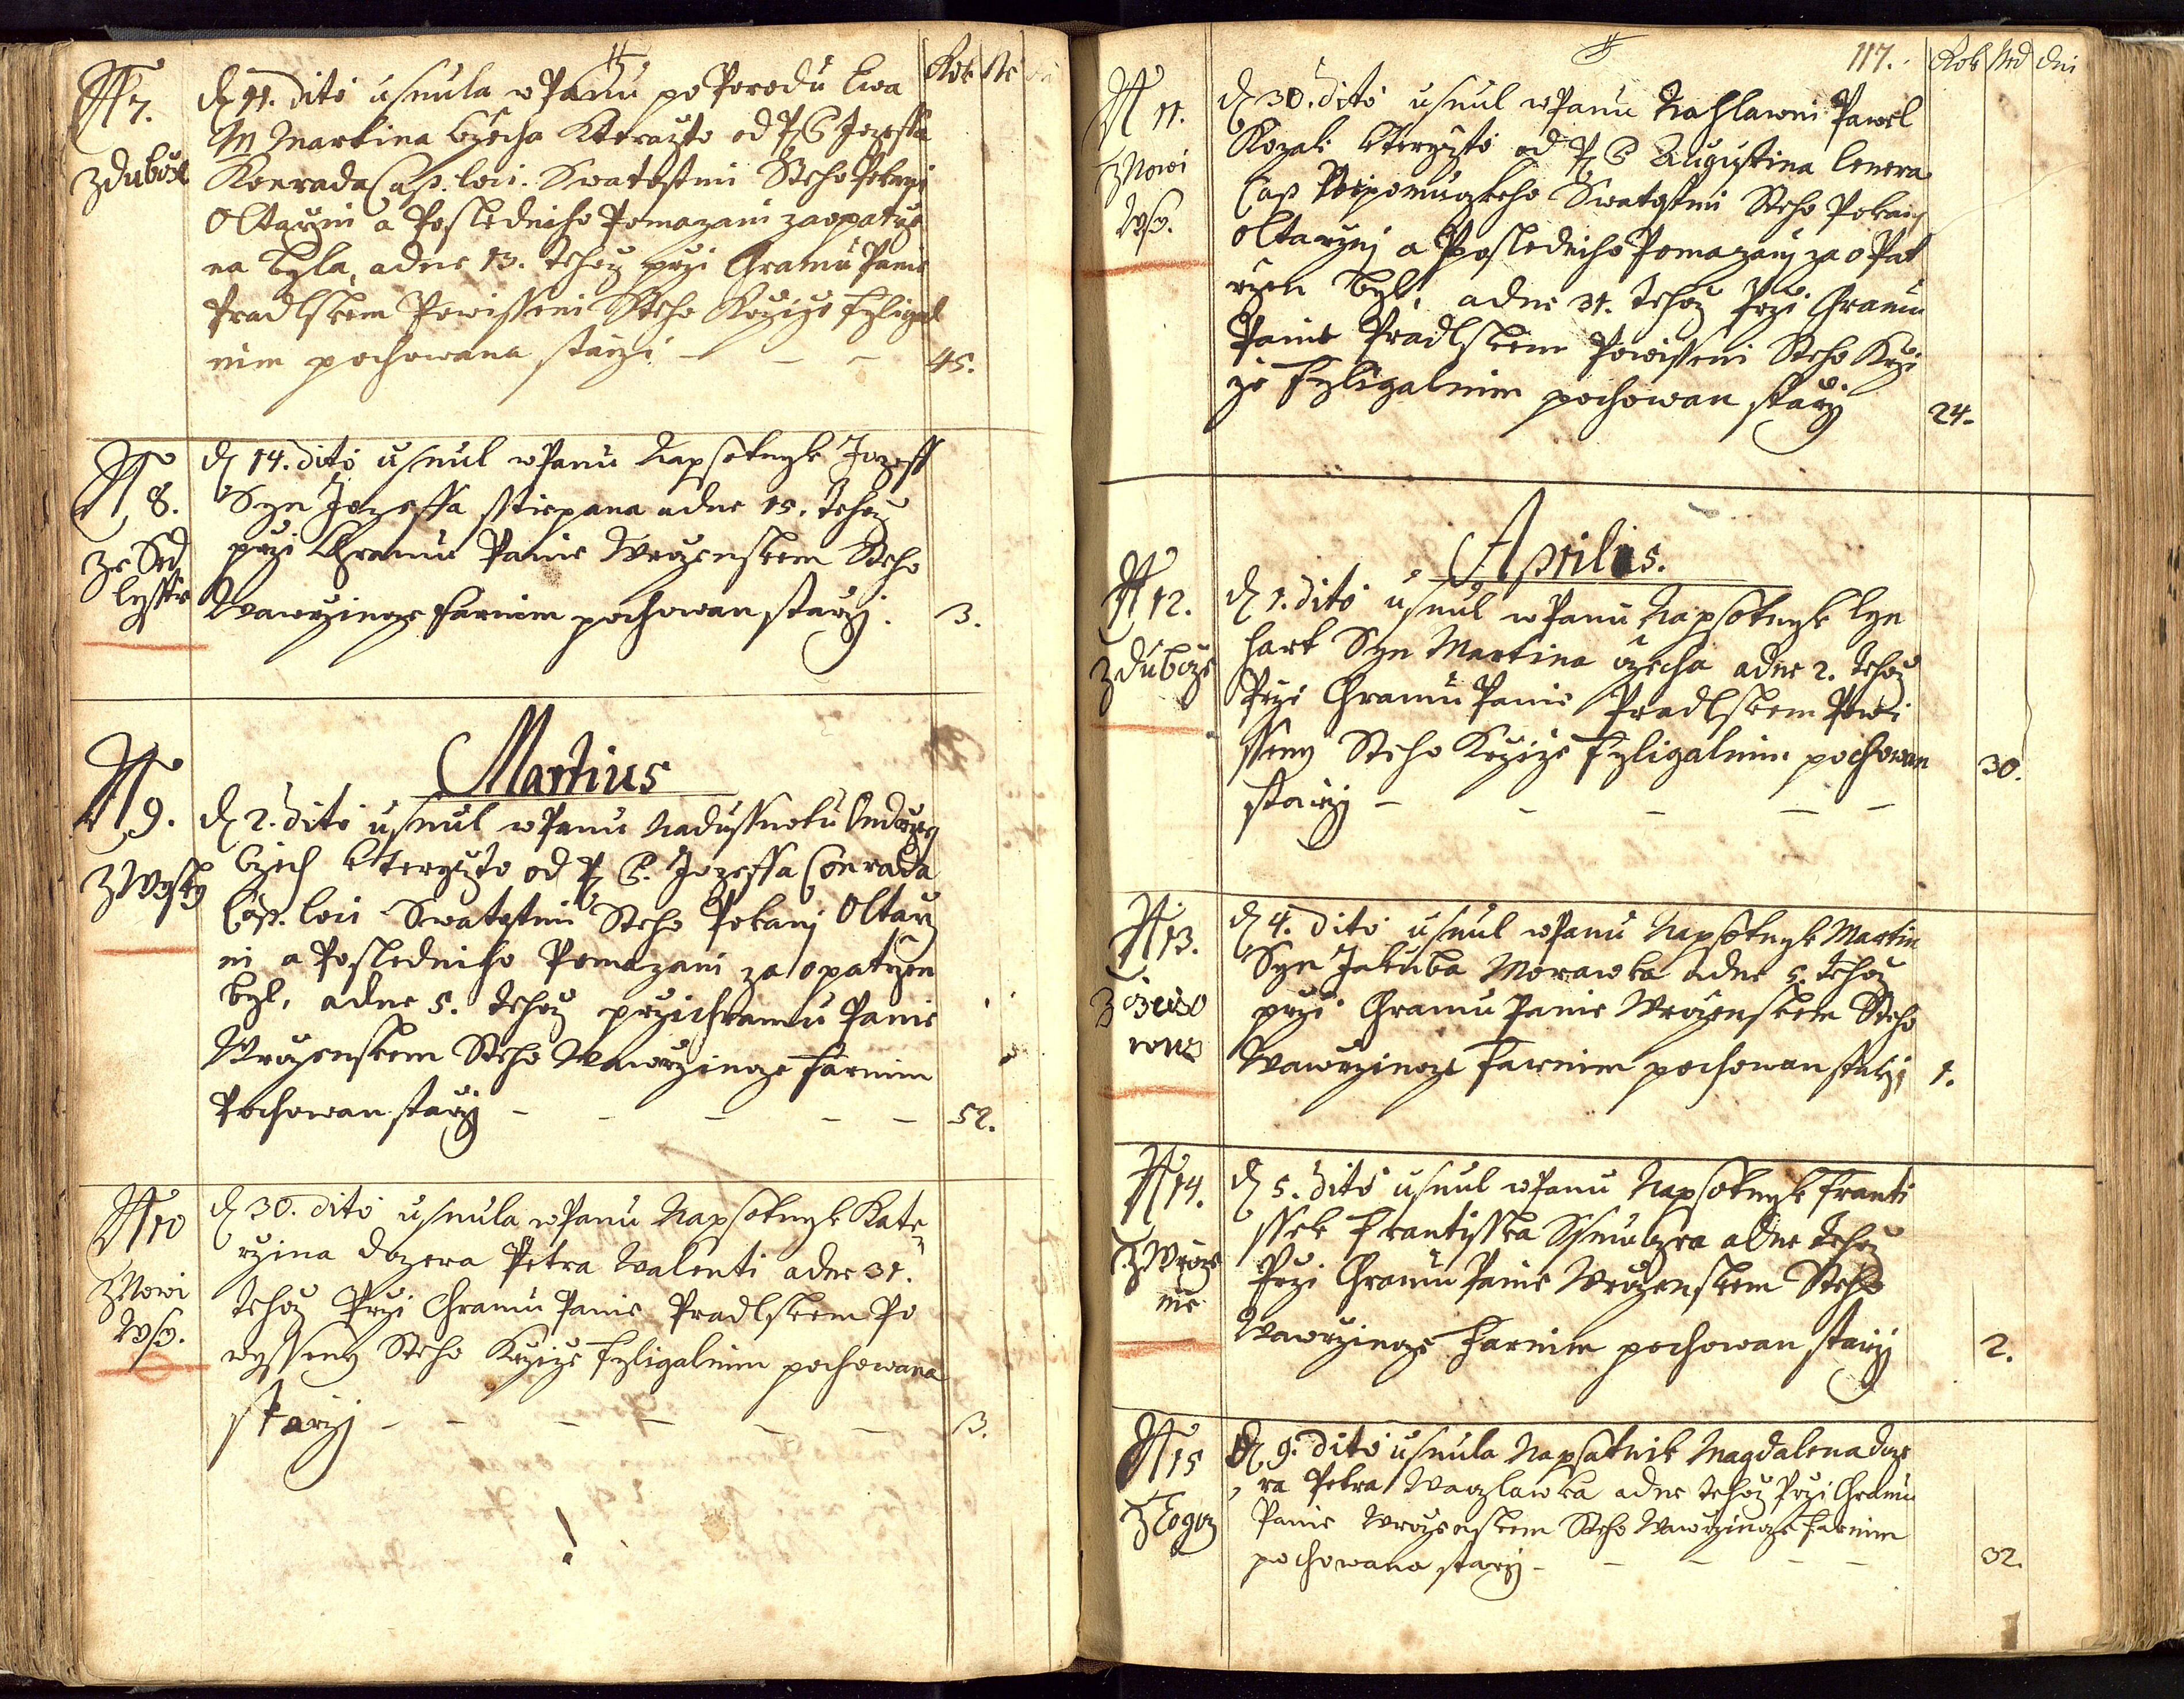 Rok
N 7.
z Duboze
d 11. dito usnula w Panu po Porodu Ewa
M Martina Czecha kterazto od P C Jozeffa
Konrada Cap. loci. Swatostmi Steho Pokani
Oltarzni a Posledniho Pomazani zaopatrze
na byla, a dne 13. tehoz przi Chramu Panie
Pradlskem Powissseni Steho Krzize Fyligal
nim pochowana starzi 45.
N 8.
ze Sed
lysste
d 14. dito usnul w Panu Na psotnyk Jozeff
Syn Jozeffa Sstiepana a dne 15. tehoz
przi Chramu Panie Wrozenskem Steho
Wawrzincze Farnim pochowan starzj. 3.
Martius
N 9.
z Wysky
d 2. dito usnul w Panu Na dussnotu Ondrzeg
Czech kteryzto od P C. Jozeffa Conrada
Cap. loci Swatostmi Steho Pokanj Oltarz
ni a Posledniho Pomazani zaopatrzen
byl, a dne 5. tehoz przi Chramu Panie
Wrozenskem Steho Wawrzincze Farnim
Pochowan starzj 52.
N 10
z Nowi
Wsy.
d 30. dito usnula w Panu Na psotnyk Kate
rzina dczera Petra Walenti a dne 31.
tehoz Przi Chramu Panie Pradlskem Po
wysseny Steho Krzize Fyligalnim pochowana
starzj 3.
117. Rok Ned dni
N 11.
z Nowi
Wsy.
d 30. dito usnul w Panu Na hlawni Pawel
Kozak kteryzto od P C. Augustina Lenera
Cap Nepomuczkeho Swatostmi Steho Pokani
Oltarznj a Posledniho Pomazanj zaopat
rzen byl, a dne 31. tehoz Przi Chramu
Panie Pradlskem Powisseni Steho Krzi
ze Fyligalnim pochowan starzj 24.
Aprilis.
N 12.
z Duboze
d 1. dito usnul w Panu Na psotnyk Lyn
hart Syn Martina Czecha a dne 2. tehoz
Przi Chramu Panie Pradlskem Powi
sseny Steho Krzize Fyligalnim pochowan
starzj 30.
N 13.
d 4. dito usnul w Panu Na psotnyk Martin
Syn Jakuba Morawka a dne 5. tehoz
przi Chramu Panie Wrozenskem Steho
Wawrzincze Farnim pochowan starzj 1.
N 14.
z Wroze
nie
d 5. dito usnul w Panu Na psotnyk Franti
ssek Frantisska a dne tehoz
Przi Chramu Panie Wrozenskem Steho
Wawrzincze Farnim pochowan starzj 2.
N 15
d 9. dito usnula Na psotnik Magdalena dcze
ra Petra Waczlawka a dne tehoz Przi Chramu
Panie Wrozenskem Steho Wawrzincze Farnim
pochowana starzj 32.